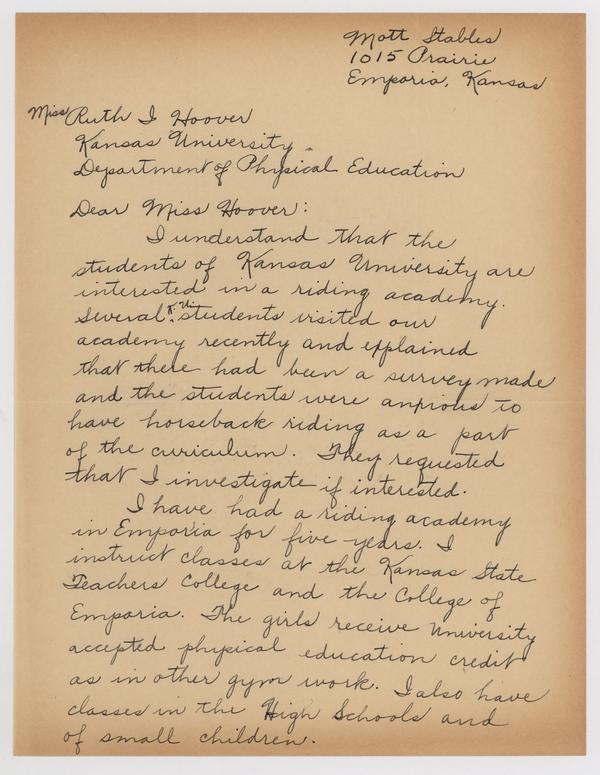 Mott Stables
1015 Prairie
Emporia, Kansas
Miss Ruth I Hoover
Kansas University
Department of Physical Education
Dear Miss Hoover:
I understand that the
students of Kansas University are
interested in a riding academy.
Several K.U. students visited our
academy recently and explained
that there had been a survey made
and the students were anxious to
have horseback riding as a part
of the curiculum. They requested
that I investigate if interested.
I have had a riding academy
in Emporia for five years. I
instruct classes at the Kansas State
Teachers College and the College of
Emporia. The girls receive University
accepted physical education credit
as in other gym work. I also have
classes in the High Schools and
of small children.